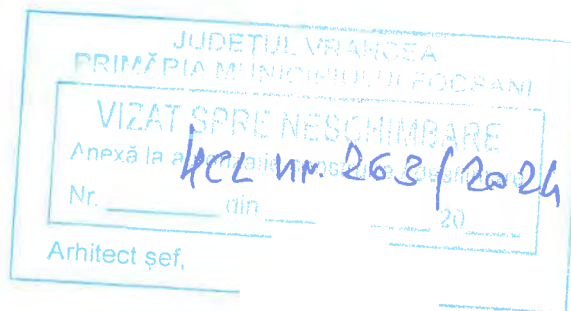 JUDEȚUL VRANCEA
PRIMĂRIA MUNICIPIULUI FOCȘANI
VIZAT SPRE NESCHIMBARE
Anexă la
HCL nr. 263/2024
Nr. din 20
Arhitect șef,